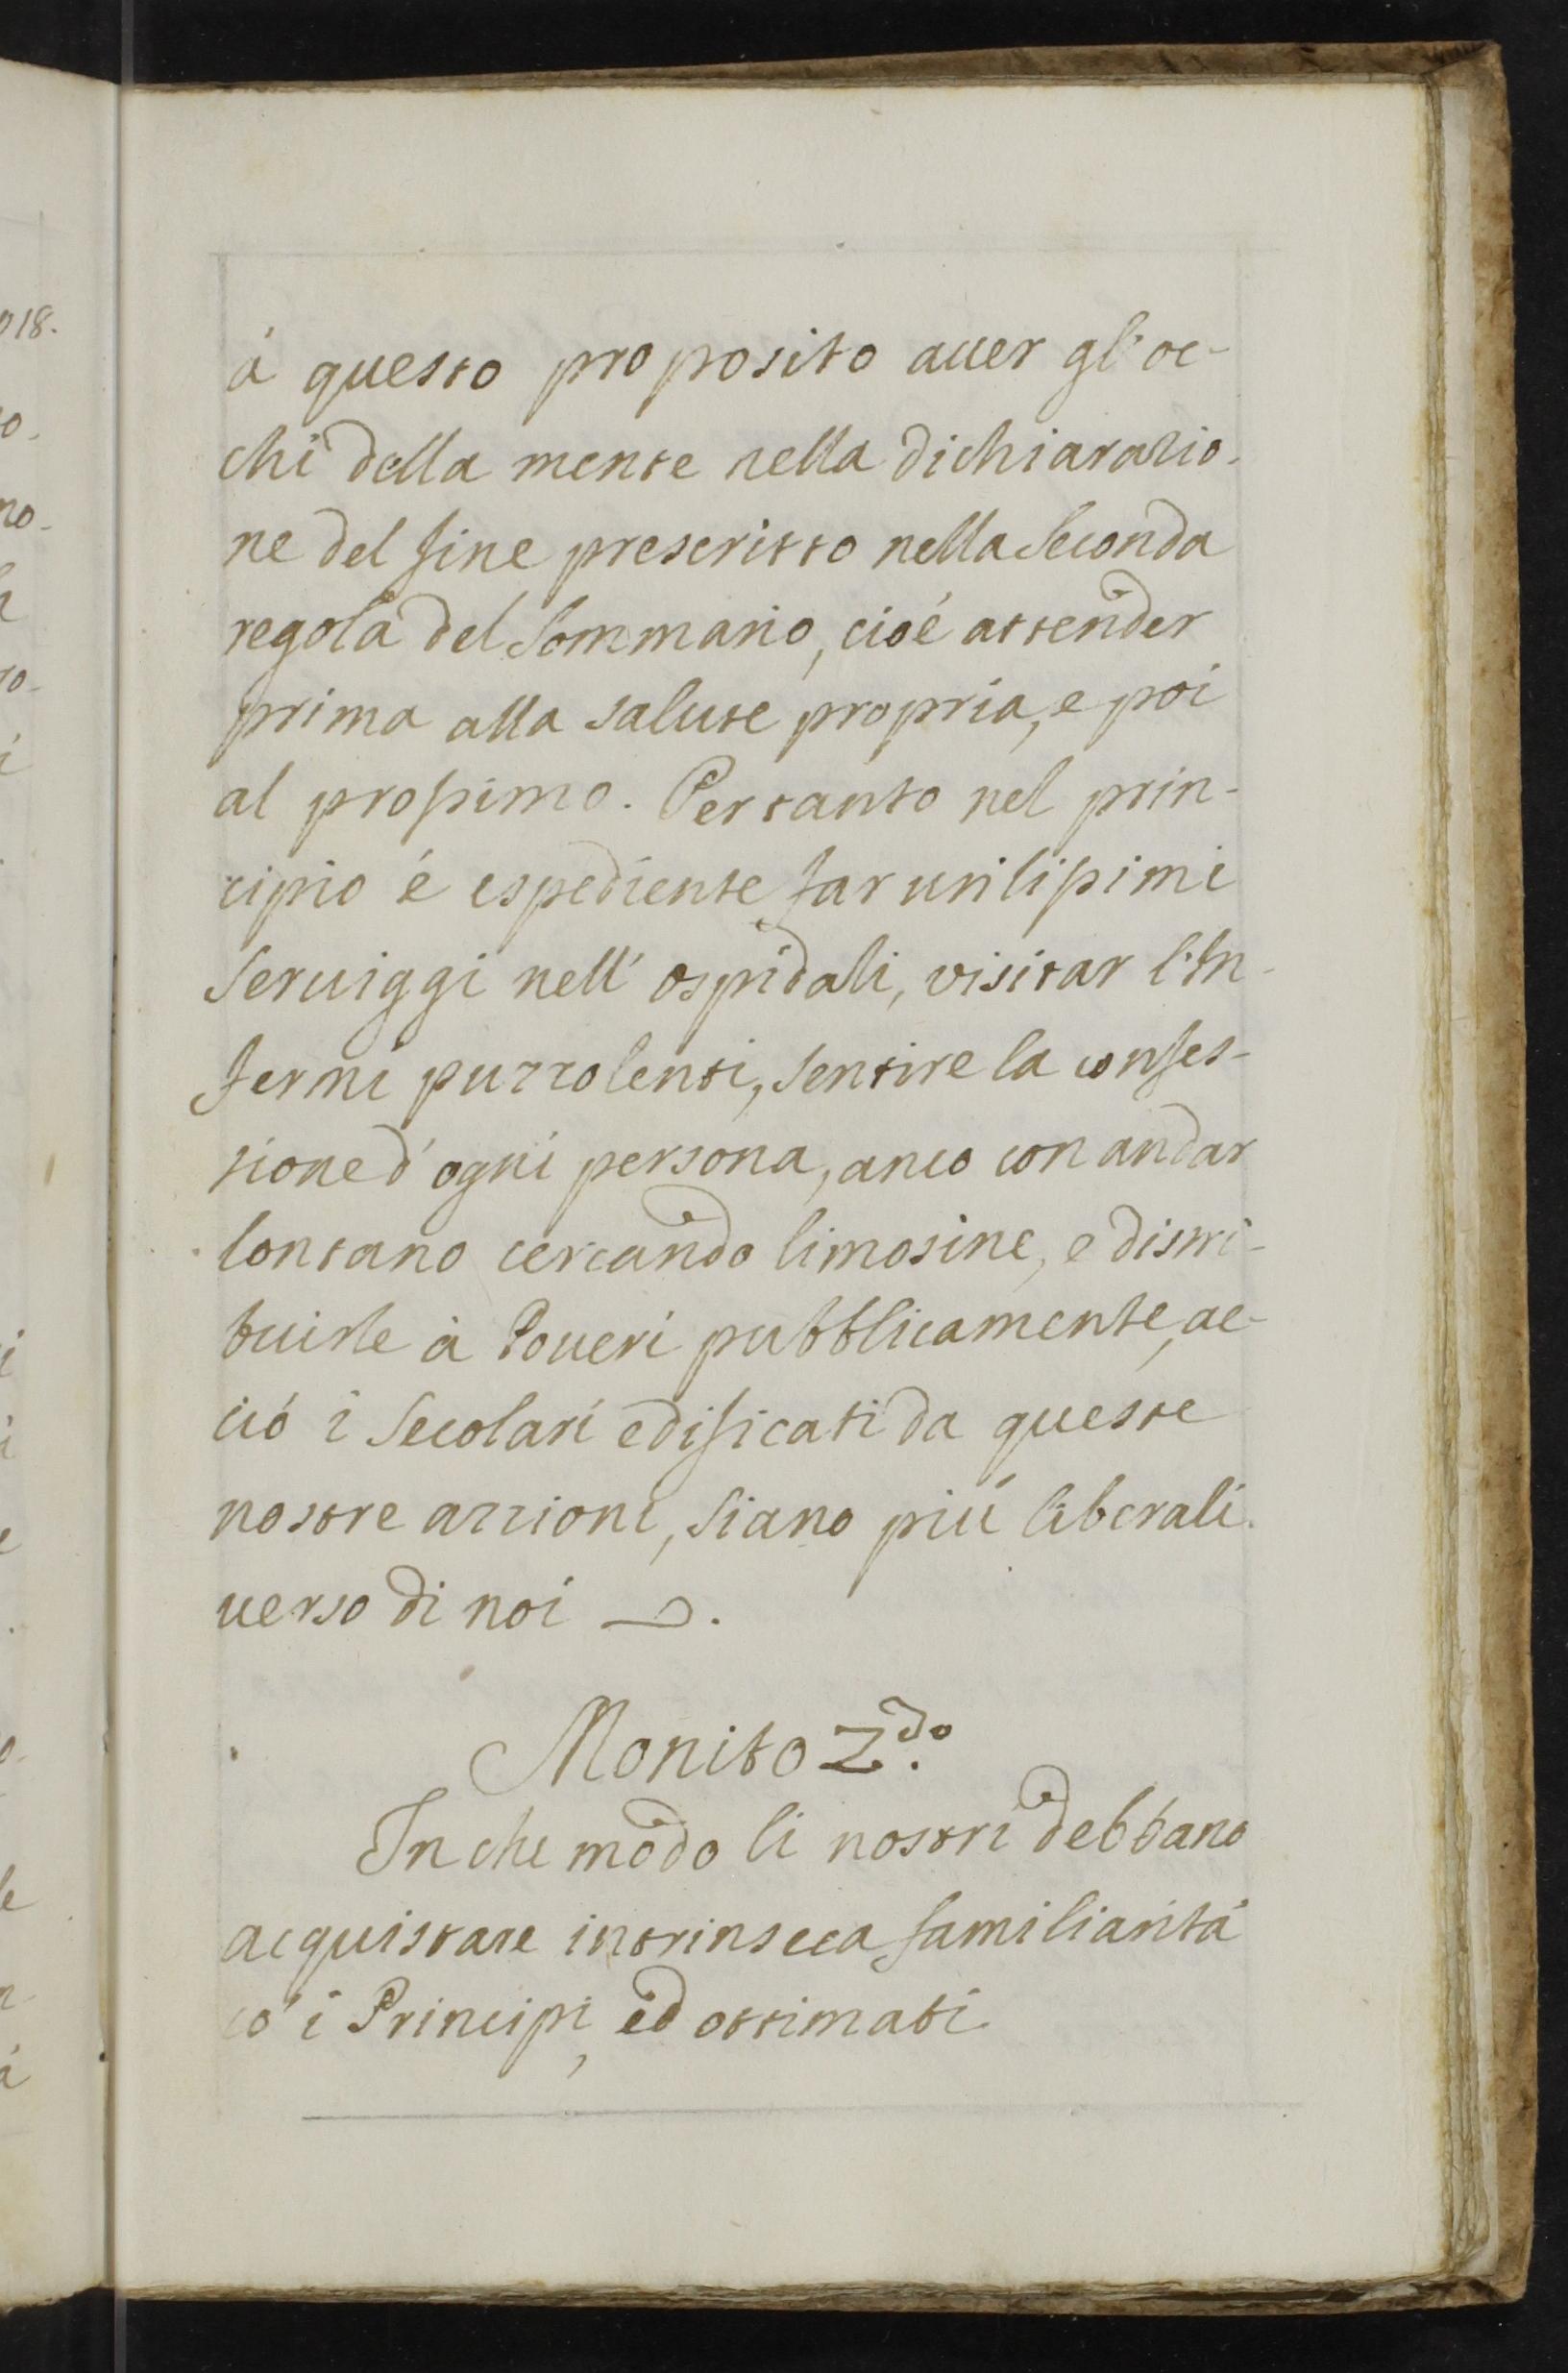 à questo proposito auer gl'oc-
chi della mente nella dichiarazio-
ne del fine prescritto nella Seconda
regola del Sommario, cioé attender
prima alla salute propria, e poi
al prossimo. Pertanto nel prin-
cipio é espediente far utilissimi
Seruiggi nell' ospidali, visitar l'In-
fermi puzzolenti, sentire la confes-
sione d'ogni persona, anco con andar
lontano cercando limosine, e distri-
buirle à Poueri pubblicamente, ac-
ció i Secolari edificati da queste
nostre azzioni, siano più liberali
uerso di noi.
Monito 2.do
In che modo li nostri debbano
acquistare intrinseca familiarità
co' i Principi, ed ottimati
018.